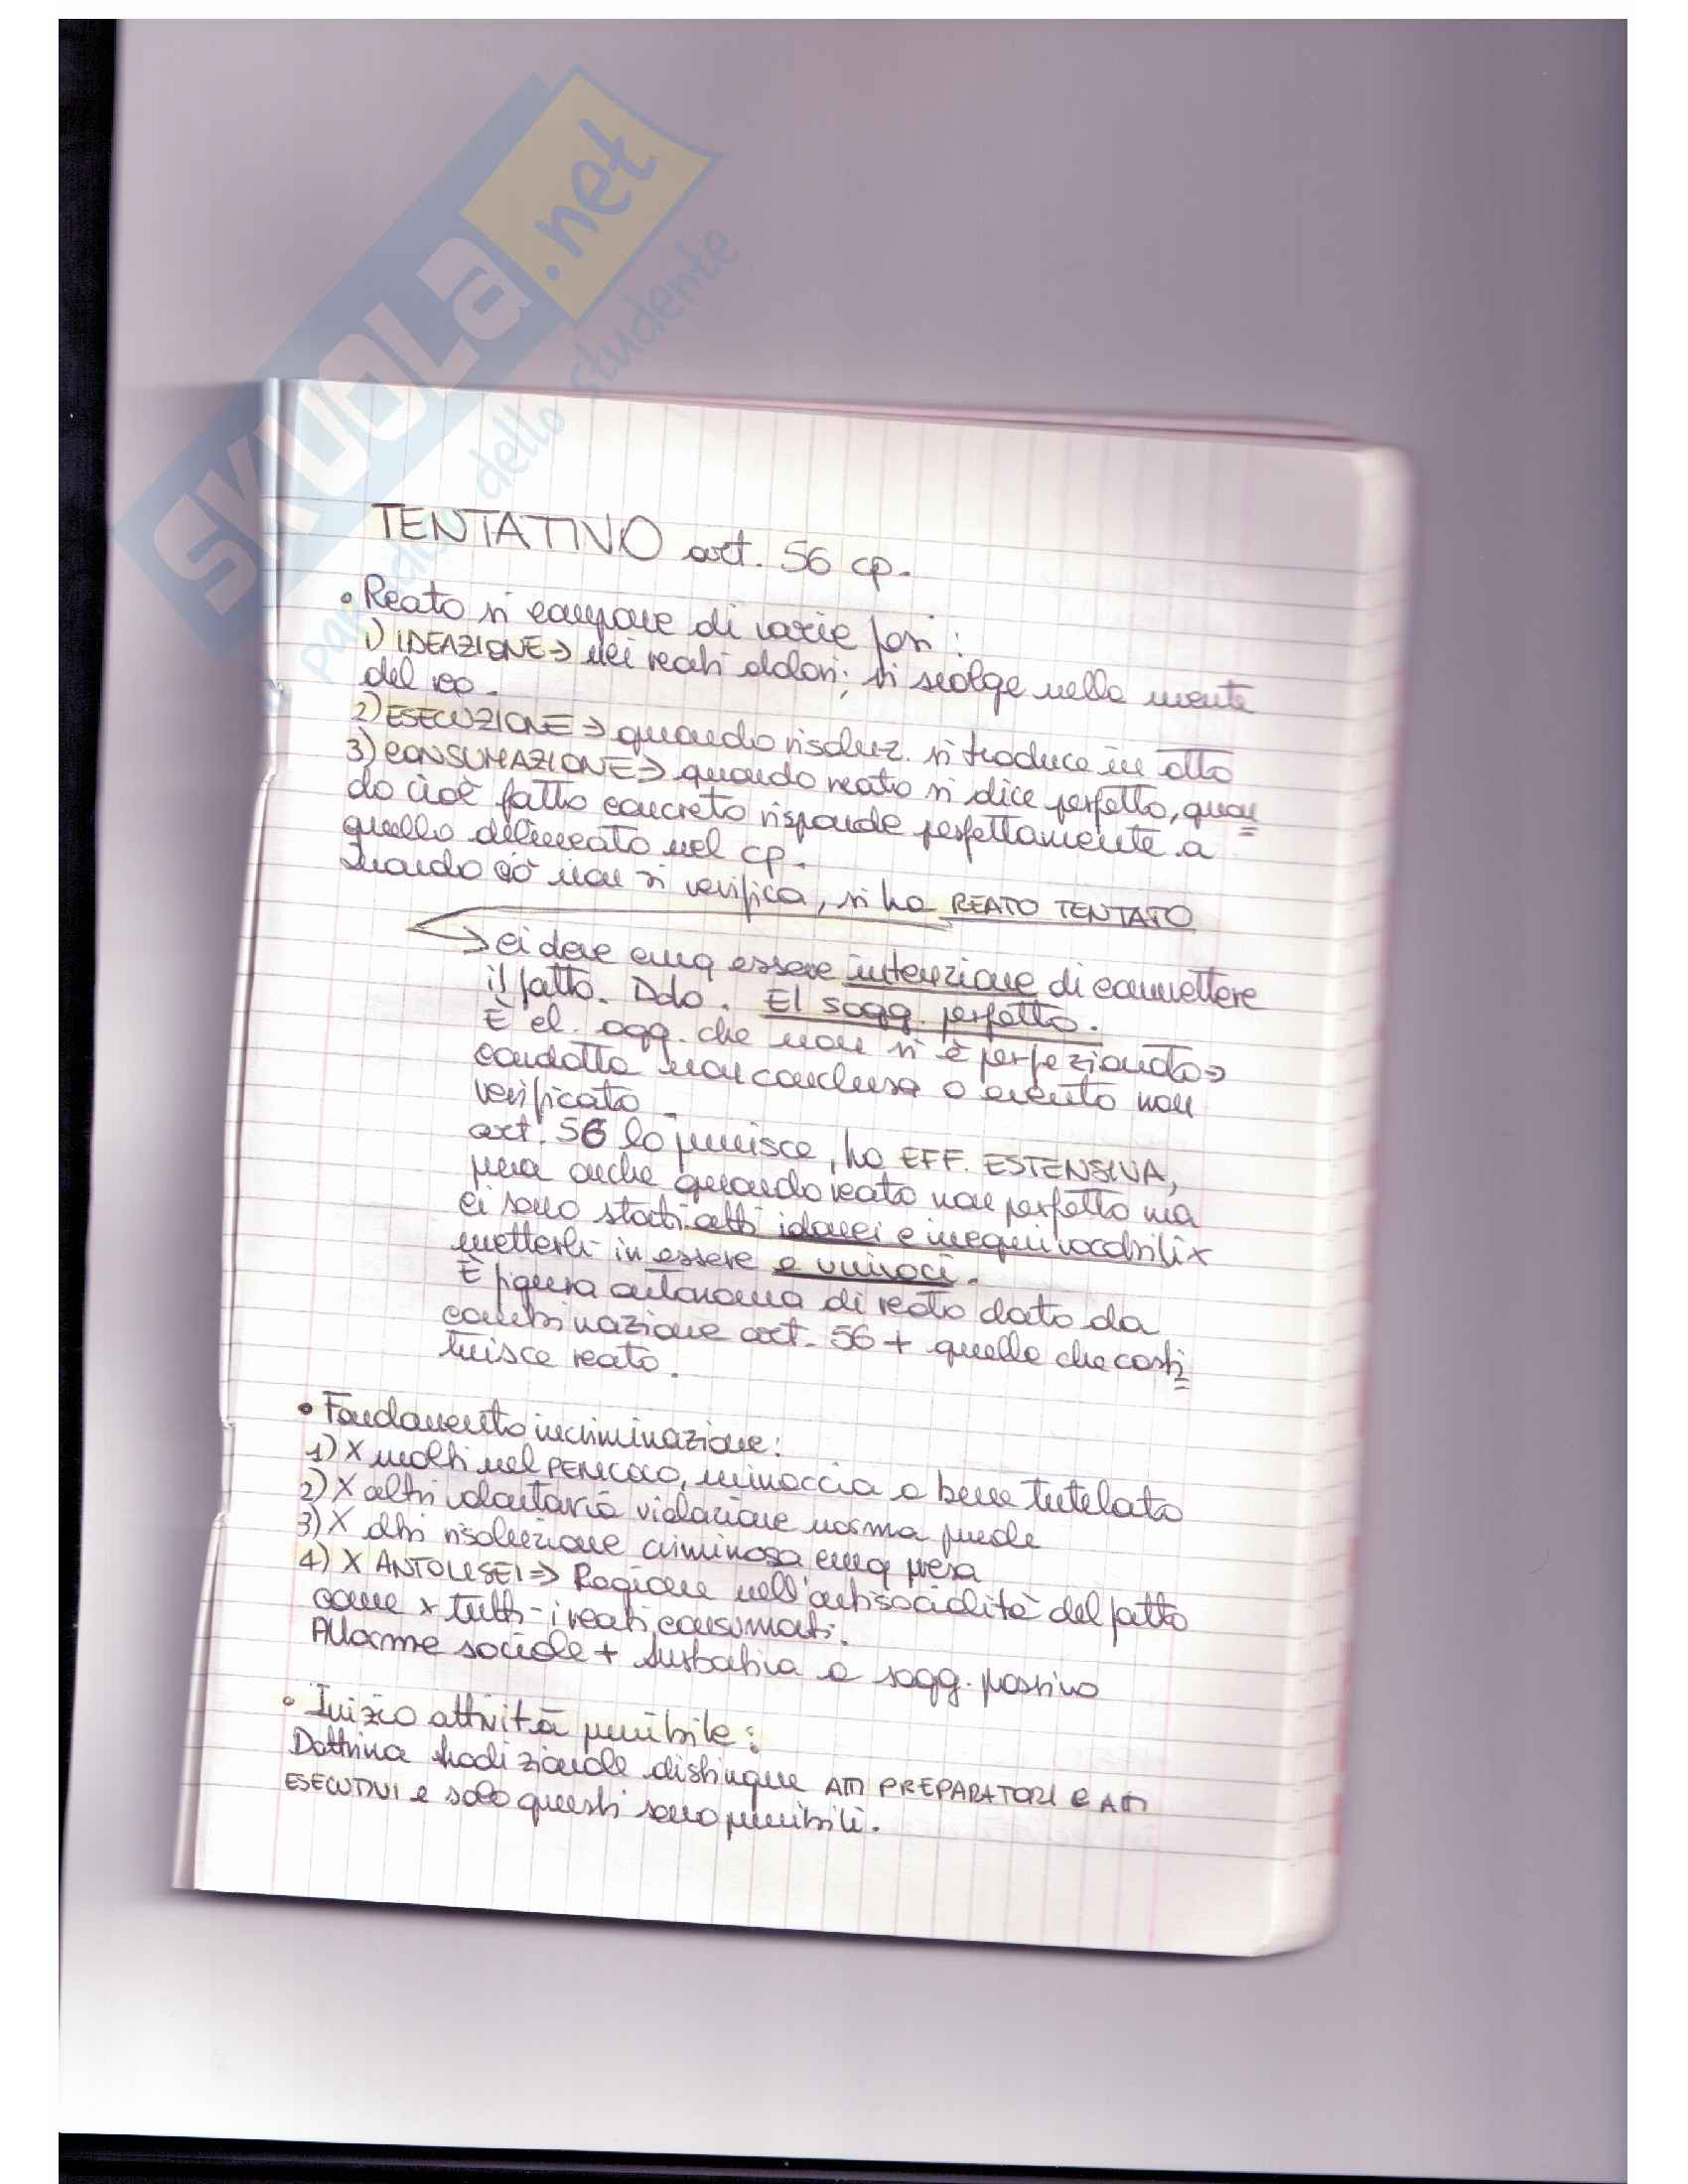 SKUOLA.net
dello studente
TENTATIVO art. 56 cp.
• Reato si compone di varie fasi:
1) IDEAZIONE → nei reati dolosi; si svolge nella mente
del reo.
2) ESECUZIONE → quando risoluz. si traduce in atto
3) CONSUMAZIONE → quando reato si dice perfetto, quan
do cioè fatto concreto risponde perfettamente a
quello delineato nel cp.
Quando ciò non si verifica, si ha REATO TENTATO
→ ci deve cmq essere intenzione di commettere
il fatto. Dolo. El sogg. perfetto.
È el. ogg. che non si è perfezionato →
condotta non conclusa o evento non
verificato.
art. 56 lo punisce, ha EFF. ESTENSIVA,
pena anche quando reato non perfetto ma
ci sono stati atti idonei e inequivocabili x
metterli in essere e univoci.
È figura autonoma di reato dato da
combinazione art. 56 + quello che costi
tuisce reato.
• Fondamento incriminazione:
1) X molti nel PERICOLO, minaccia a bene tutelato
2) X altri volontaria violazione norma penale
3) X altri risoluzione criminosa cmq presa
4) X ANTOLISEI → Ragione nell'antisocialità del fatto
come x tutti i reati consumati.
Allarme sociale + turbativa a sogg. passivo
• Inizio attività punibile:
Dottrina tradizionale distingue ATTI PREPARATORI e ATTI
ESECUTIVI e solo questi sono punibili.